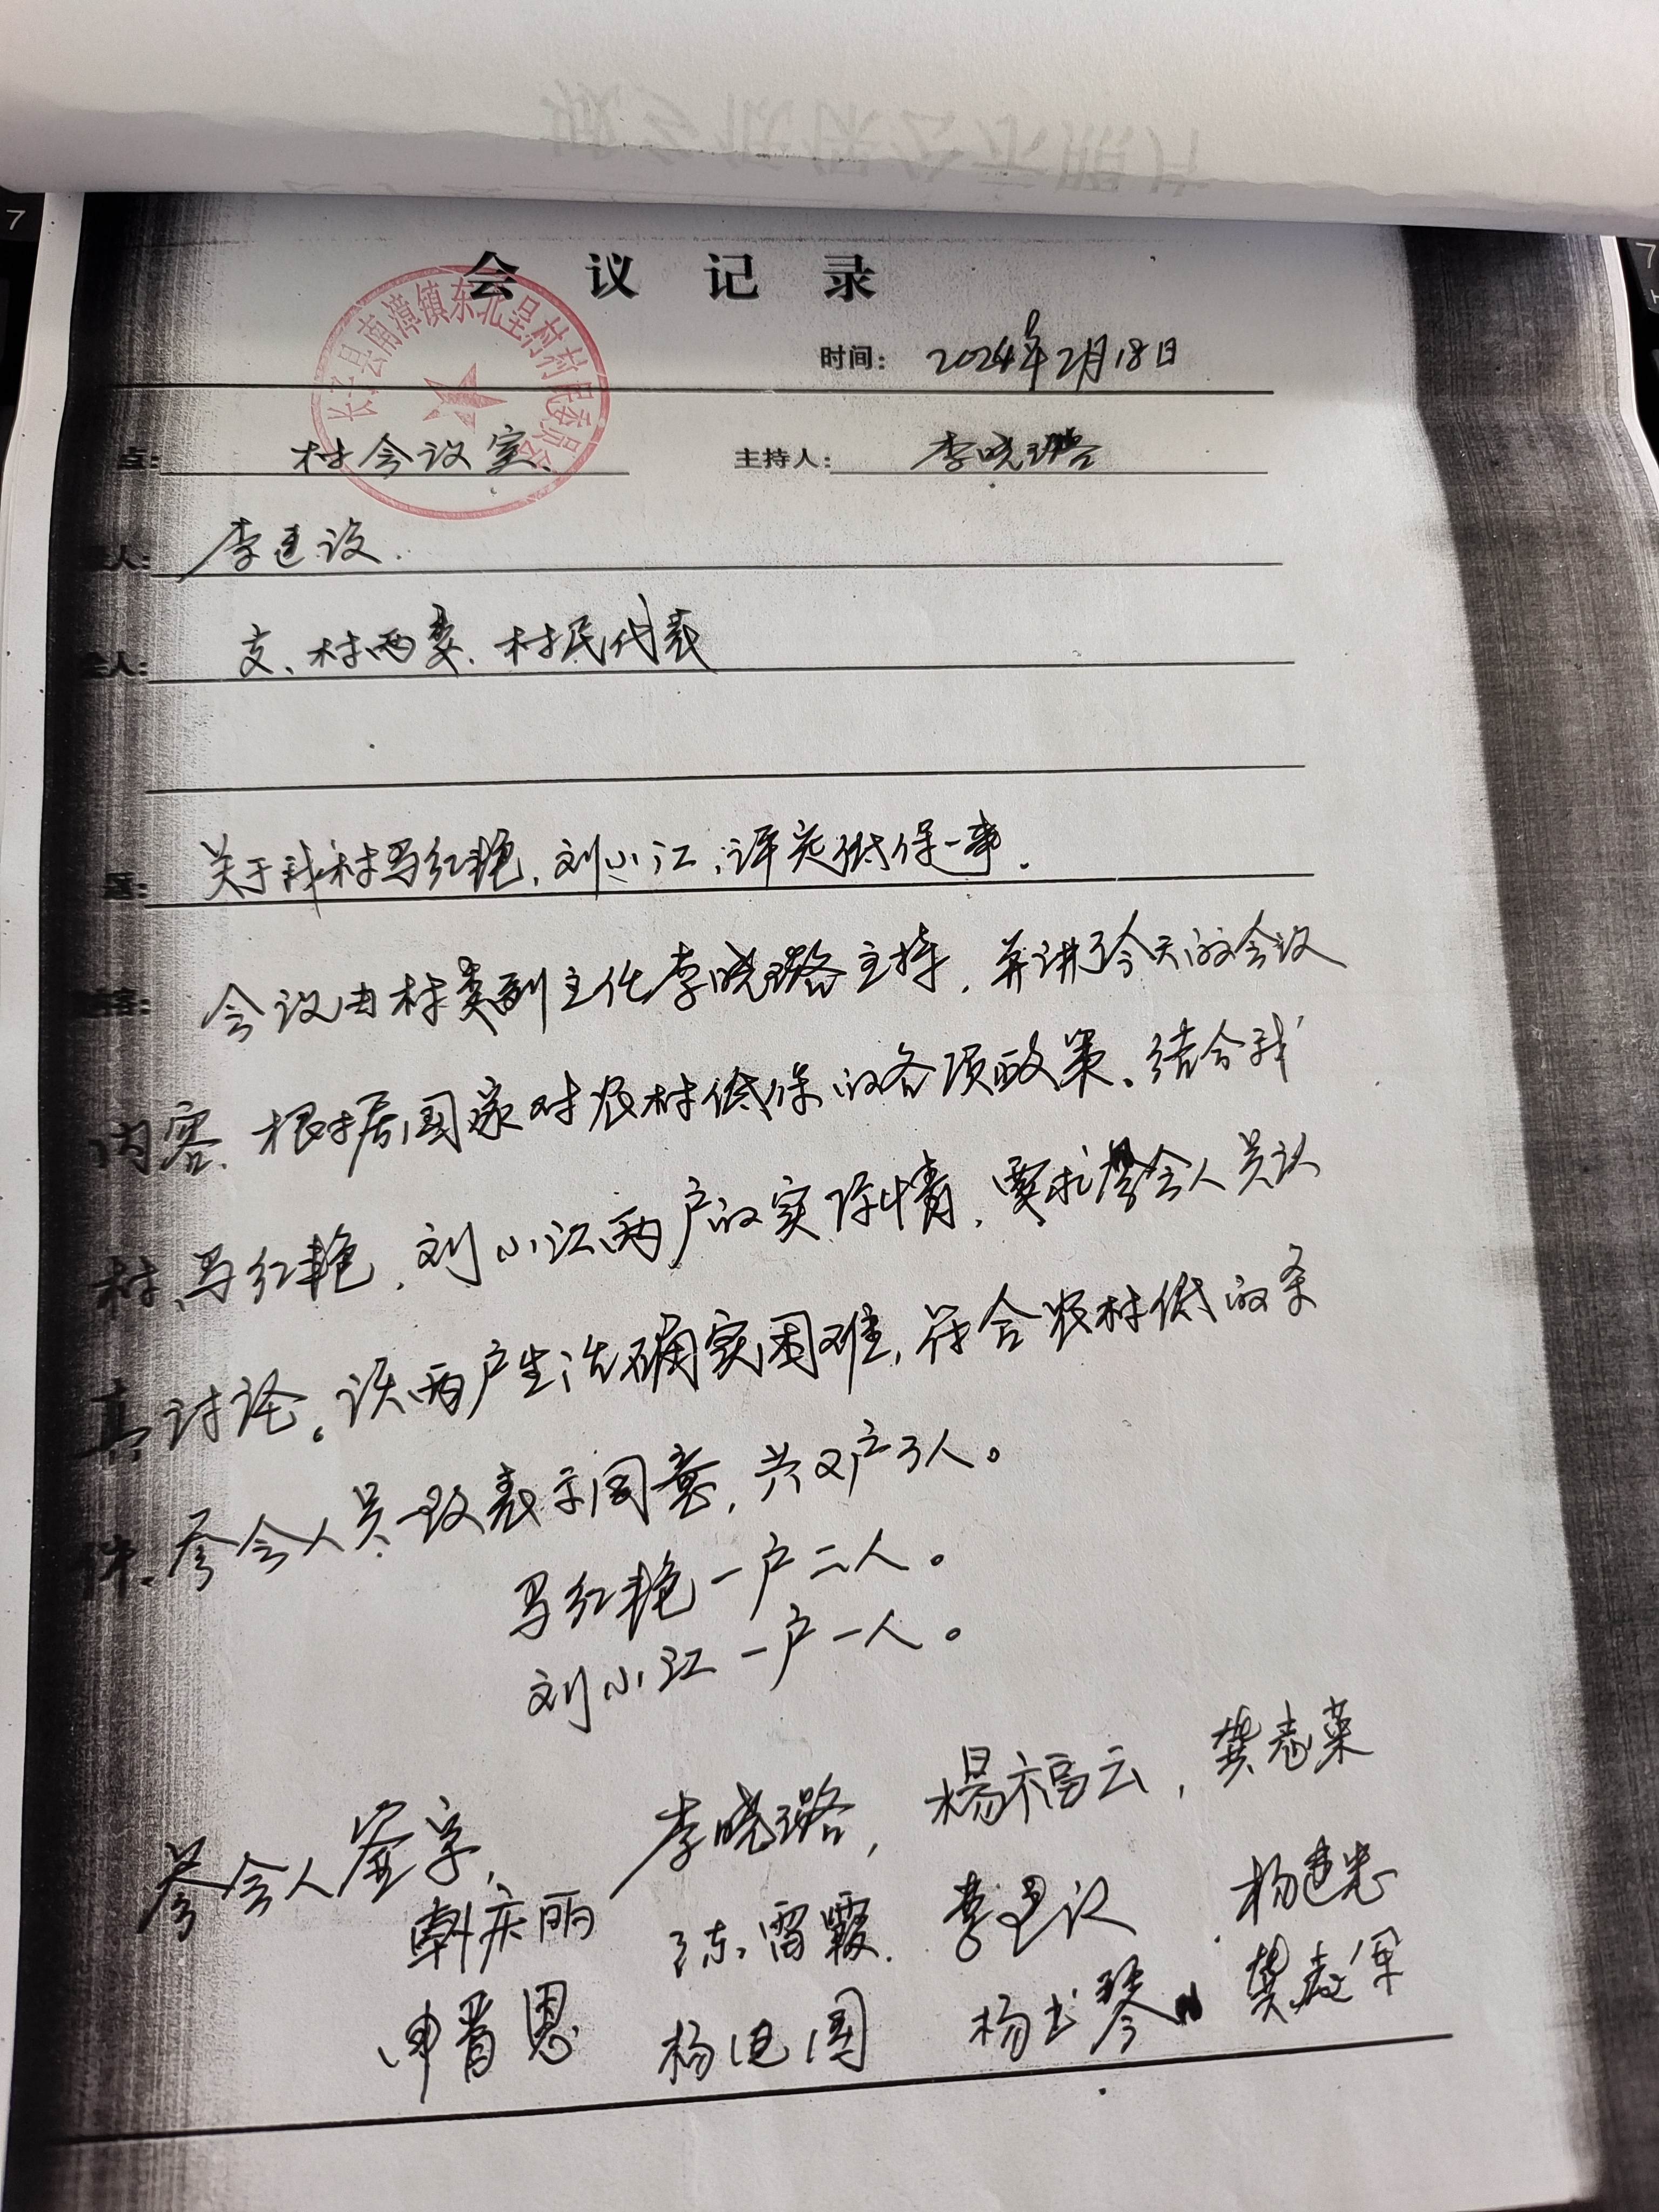 会 议 记 录
长子县南漳镇东北呈村村民委员会
时间: 2024年2月18日
点: 村会议室. 主持人: 李晓璐
人: 李建设.
人: 支、村两委、村民代表
题: 关于我村马红艳、刘小江,评定低保一事.
会议由村委副主任李晓璐主持,并讲了今天的会议
内容.根据国家对农村低保的各项政策.结合我
村马红艳,刘小江两户的实际情,要求参会人员认
真讨论。该两户生活确实困难,符合农村低的条
件.参会人员一致表示同意,共2户3人。
马红艳一户二人。
刘小江一户一人。
参会人签字, 李晓璐, 杨福云, 龚志荣
韩庆丽 陈雷霞. 李建议 杨建忠
申晋恩 杨建国 杨书琴 龚志军